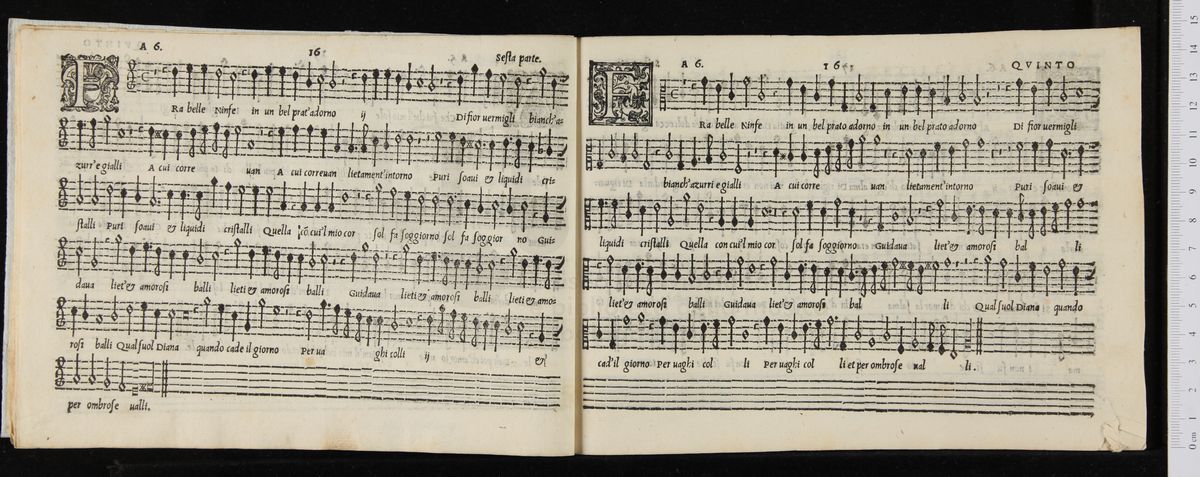 A 6.
16
Sesta parte.
FRa belle Ninfe in un bel prat'adorno ij Di fior uermigli bianch'az-
zurr'e gialli A cui corre uan A cui correuan lietament'intorno Puri soaui & liquidi cris
stalli Puri soaui & liquidi cristalli Quella cõ cui'l mio cor sol fa soggiorno sol fa soggior no Gui-
daua liet'& amorosi balli lieti & amorosi balli Guidaua lieti & amorosi balli lieti & amo-
rosi balli Qual suol Diana quando cade il giorno Per ua ghi colli ij &
per ombrose ualli.
A 6.
16
QVINTO
FRa belle Ninfe in un bel prato adorno in un bel prato adorno Di fior uermigli
bianch'azurri e gialli A cui corre uan lietament'intorno Puri soaui &
liquidi cristalli Quella con cui'l mio cor sol fa soggiorno Guidaua liet'& amorosi bal li
liet'& amorosi balli Guidaua liet'& amorosi bal li Qual suol Diana quando
cad'il giorno Per uaghi col li Per uaghi col li et per ombrose ual li.
0 cm 1 2 3 4 5 6 7 8 9 10 11 12 13 14 15